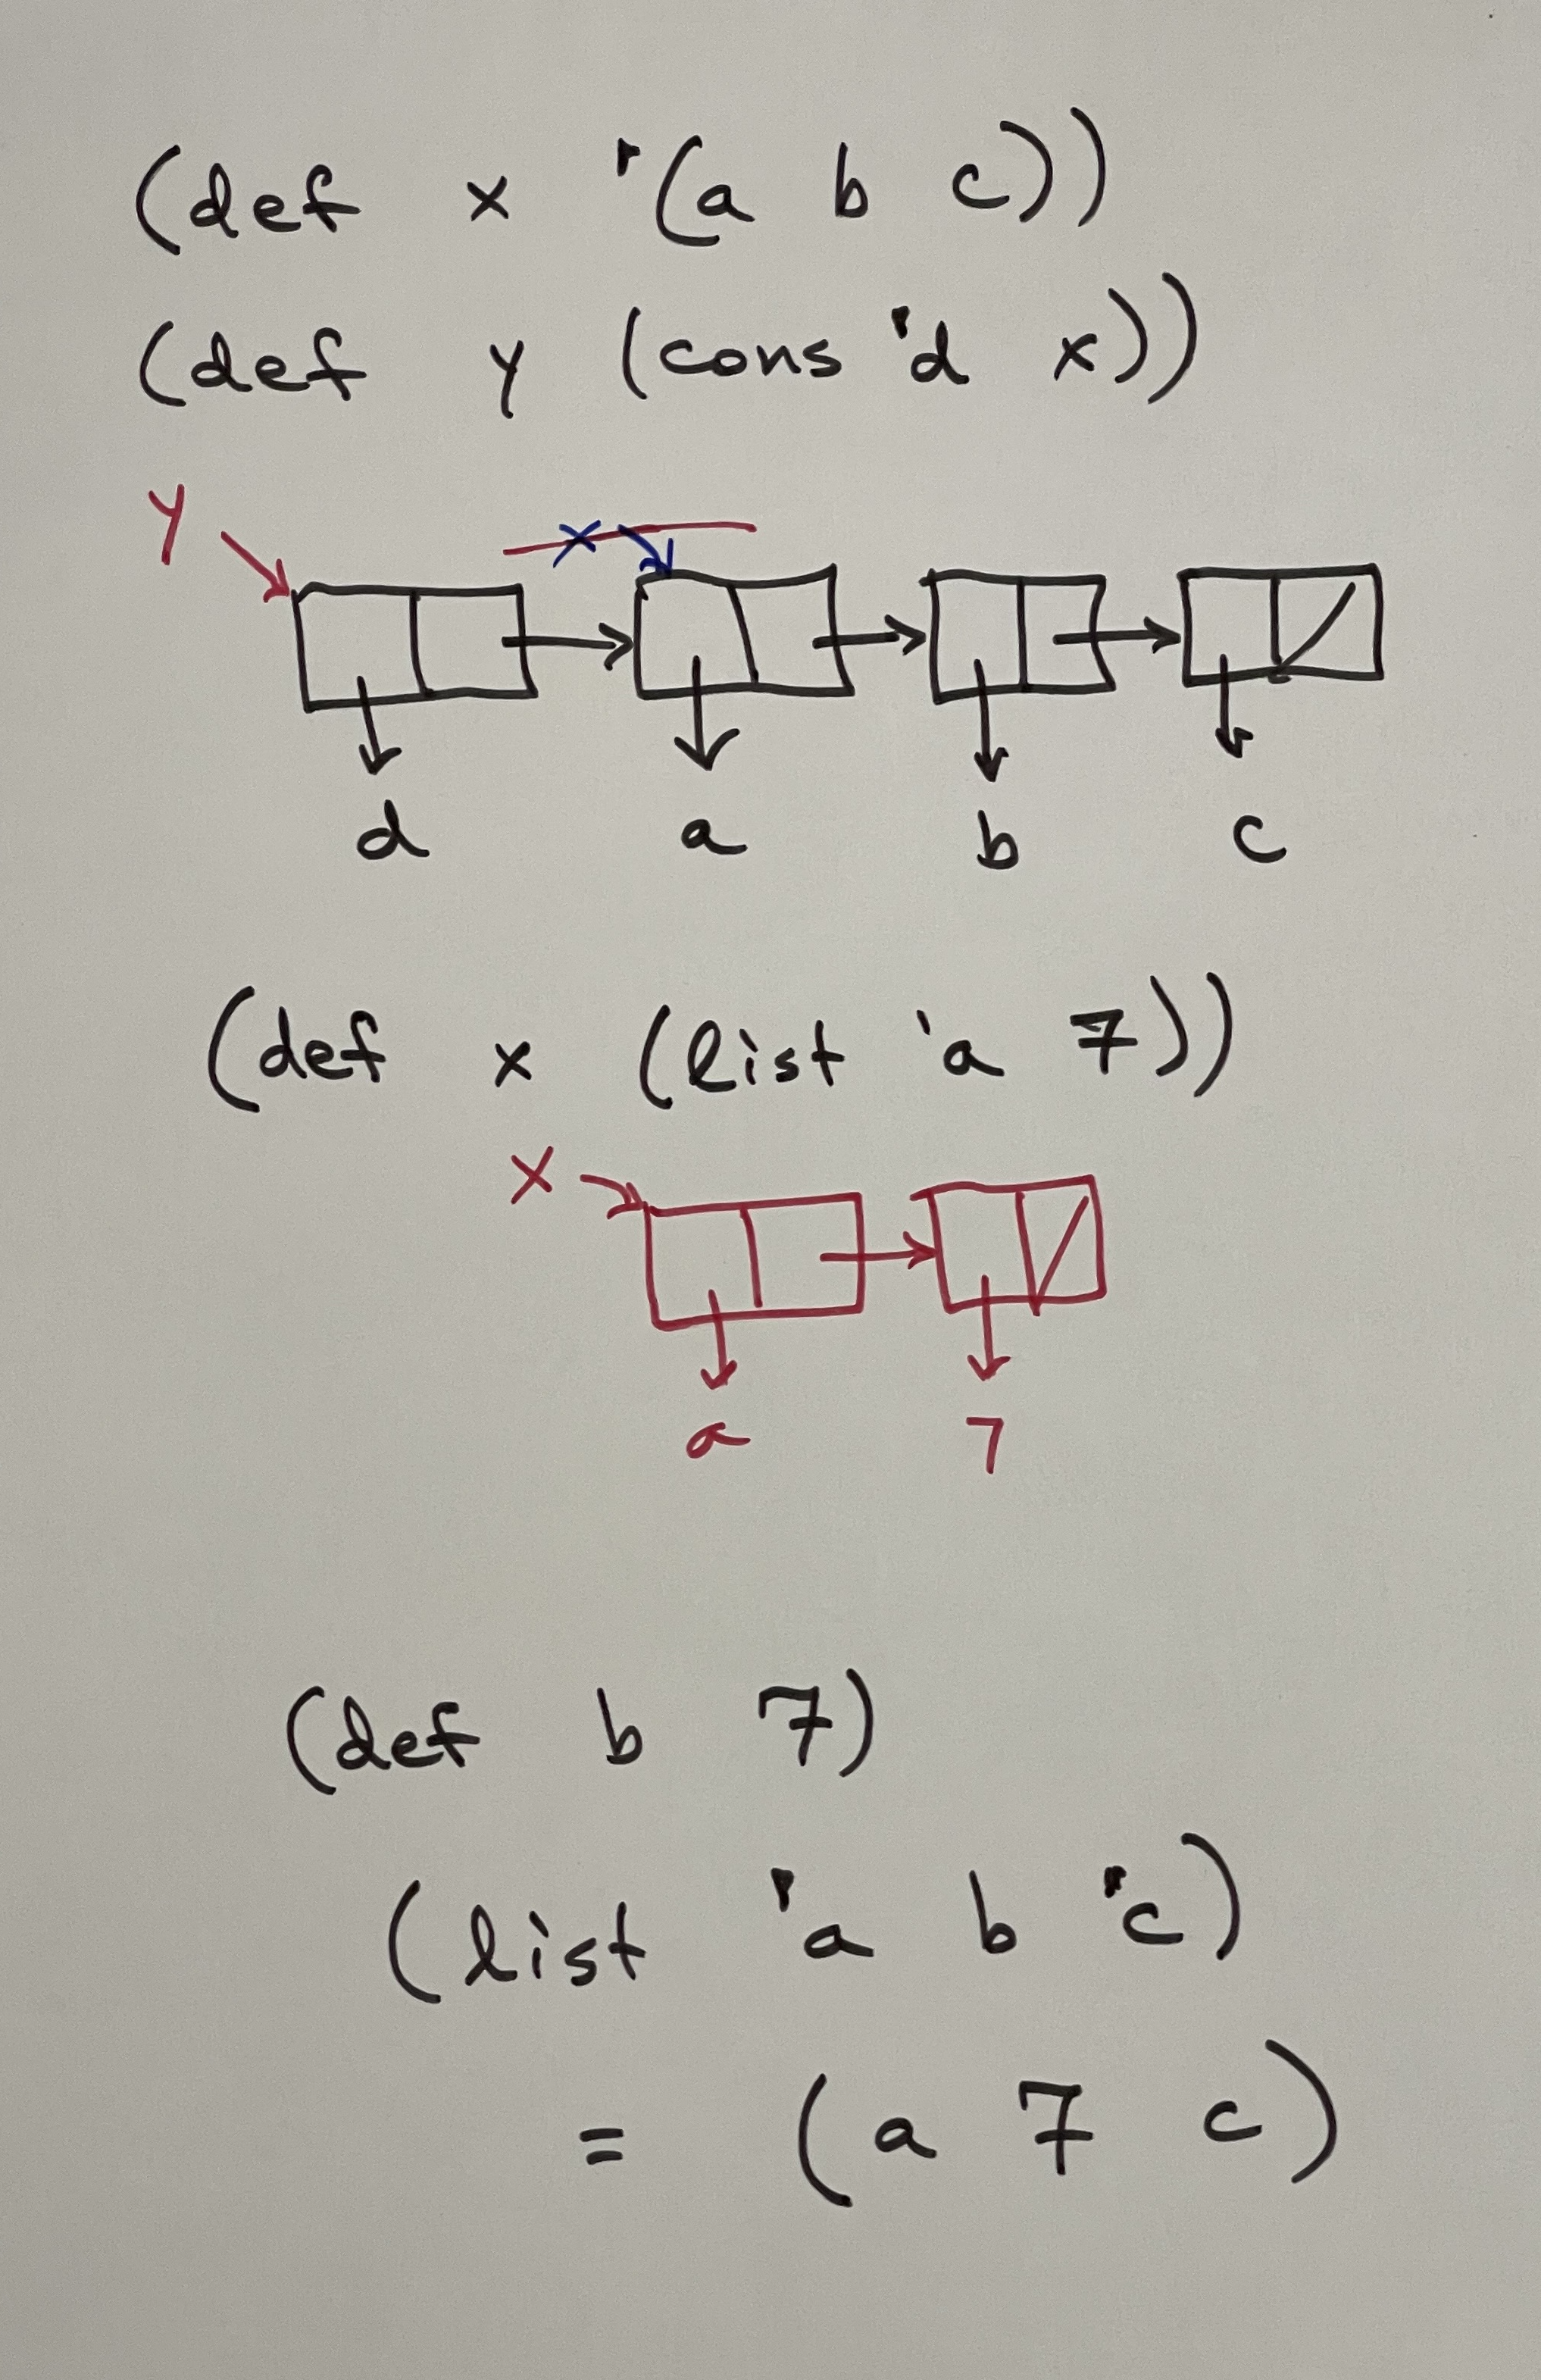 (def x '(a b c))
(def y (cons 'd x))
y x
d a b c
(def x (list 'a 7))
x
a 7
(def b 7)
(list 'a b 'c)
= (a 7 c)